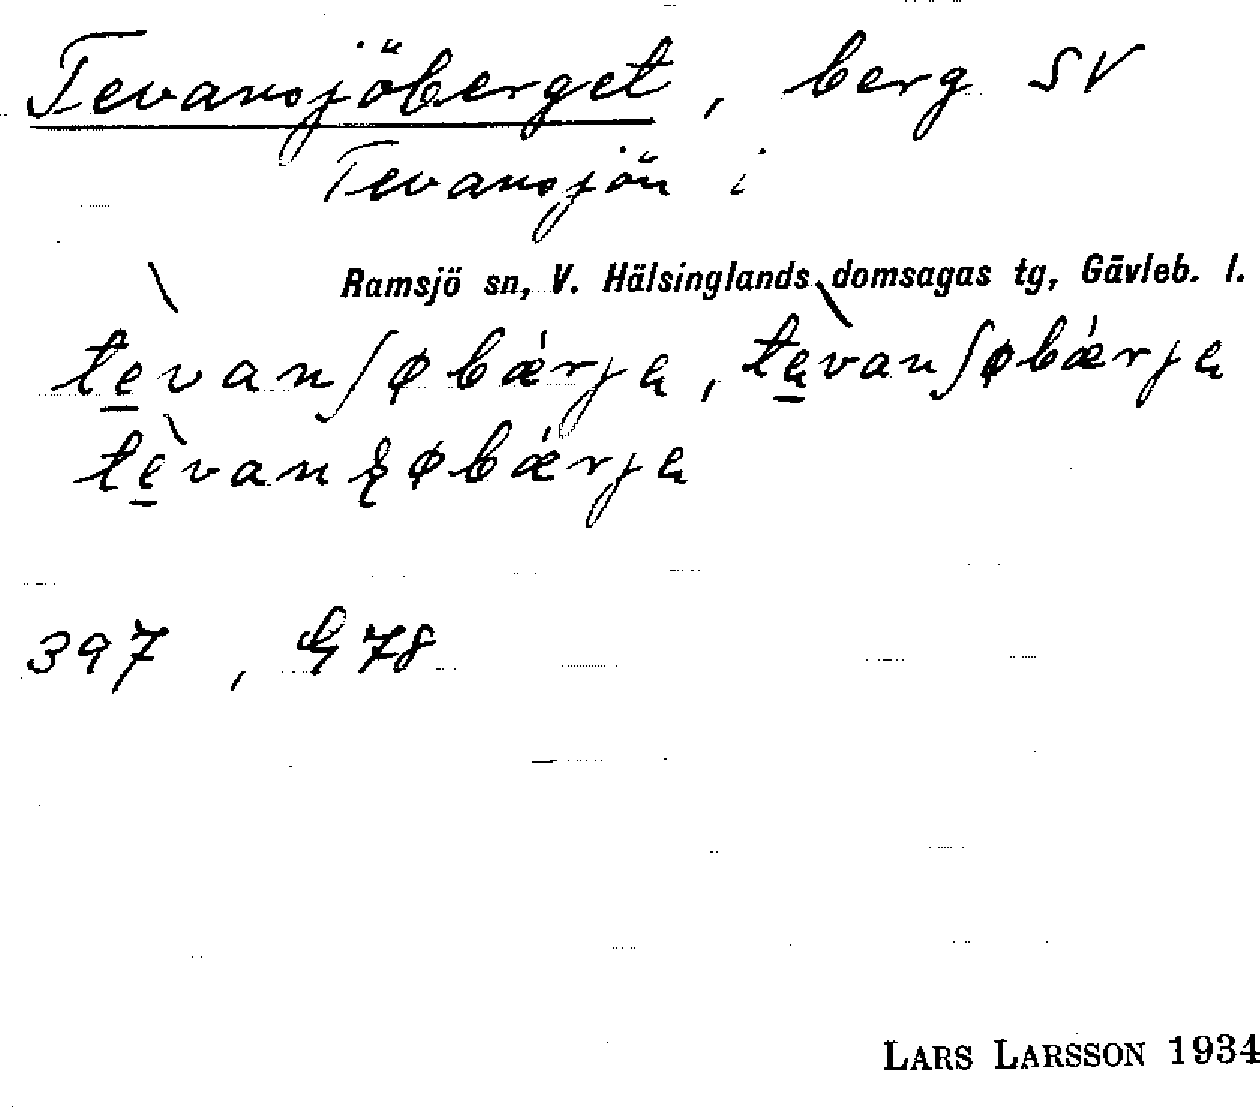 Tevansjöberget, berg SV
Tevansjön i
Ramsjö sn, V. Hälsinglands domsagas tg, Gävleb. l.
tè̠vanʃøbǽrja, tà̠vanʃøbǽrja
tè̠van ꜩøbǽrja
397, G 78
LARS LARSSON 1934